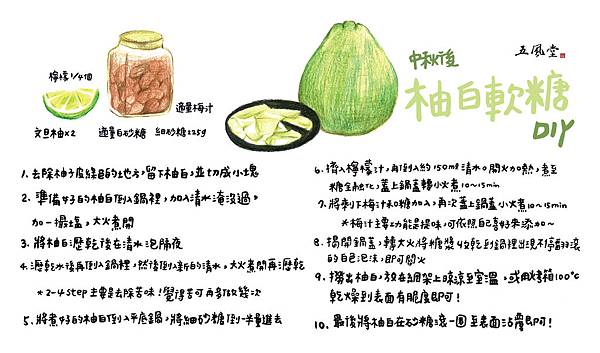 中秋後
柚白軟糖
DIY
五風堂
檸檬1/4個
適量梅汁
文旦柚x2
適量白砂糖
細砂糖225g
1. 去除柚子皮綠色的地方,留下柚白,並切成小塊
2. 準備好的柚白倒入鍋裡,加入清水淹沒過。
加一撮塩,大火煮開
3. 將柚白瀝乾後在清水泡隔夜
4. 瀝乾水後再倒入鍋裡,然後倒入新的清水,大火煮開再瀝乾
*2-4 step 主要是去除苦味!覺得苦可再多做幾次
5. 將煮好的柚白倒入平底鍋,將細砂糖倒一半量進去
6. 擠入檸檬汁,再倒入約150ml清水。開火加熱,煮至
糖全融化,蓋上鍋蓋轉小火煮10~15min
7. 將剩下梅汁和糖加入,再次蓋上鍋蓋小火煮10~15min
*梅汁主要功能是提味,可依照自己喜好來添加~
8. 揭開鍋蓋,轉大火將糖漿收乾到鍋裡出現不停翻滾
的白色泡沫,即可關火
9. 撈出柚白,放在網架上晾涼至室溫,或用烤箱100°C
乾燥到表面有脆度即可!
10. 最後將柚白在砂糖滾一圈至表面沾覆即可!